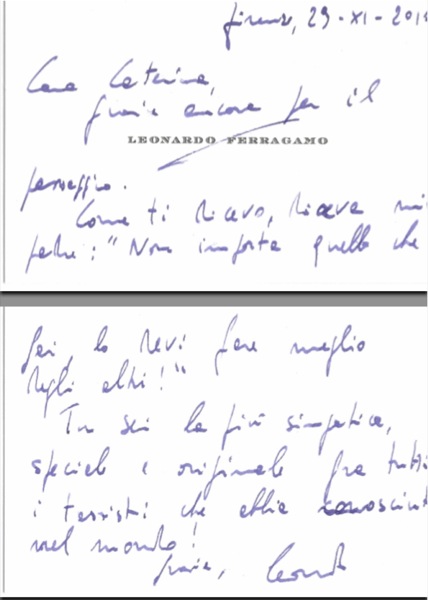 Firenze, 29-XI-201
Cara Caterina,
grazie ancora per il
LEONARDO FERRAGAMO
passaggio.
Come ti dicevo, diceva mi
padre: "Non importa quello che
fai, lo devi fare meglio
degli altri!"
Tu sei la più simpatica,
speciale e originale fra tutti
i tassisti che abbia conosciut
nel mondo!
Grazie, Leonardo